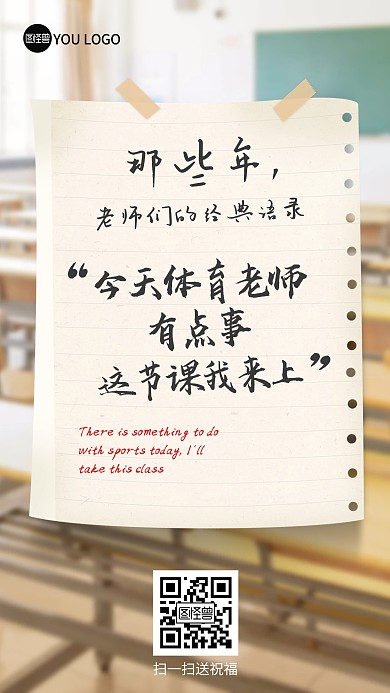 图怪兽 YOU LOGO
那些年，
老师们的经典语录
“今天体育老师
有点事
这节课我来上”
There is something to do
with sports today, I'll
take this class
图怪兽
扫一扫送祝福